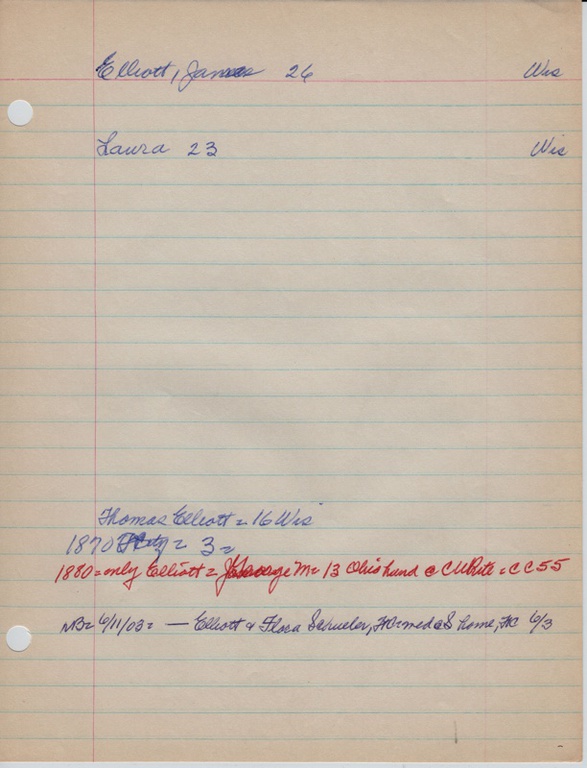 Elliott, James 26 Wis
Laura 23 Wis
Thomas Elliott = 16 Wis
1870 = 3 =
1880 = only Elliott = George M = 13 Ohio hand @ C White = CC55
NB = 6/11/03 = — Elliott & Flora Schueler, FC = med @ S home, FC 6/3